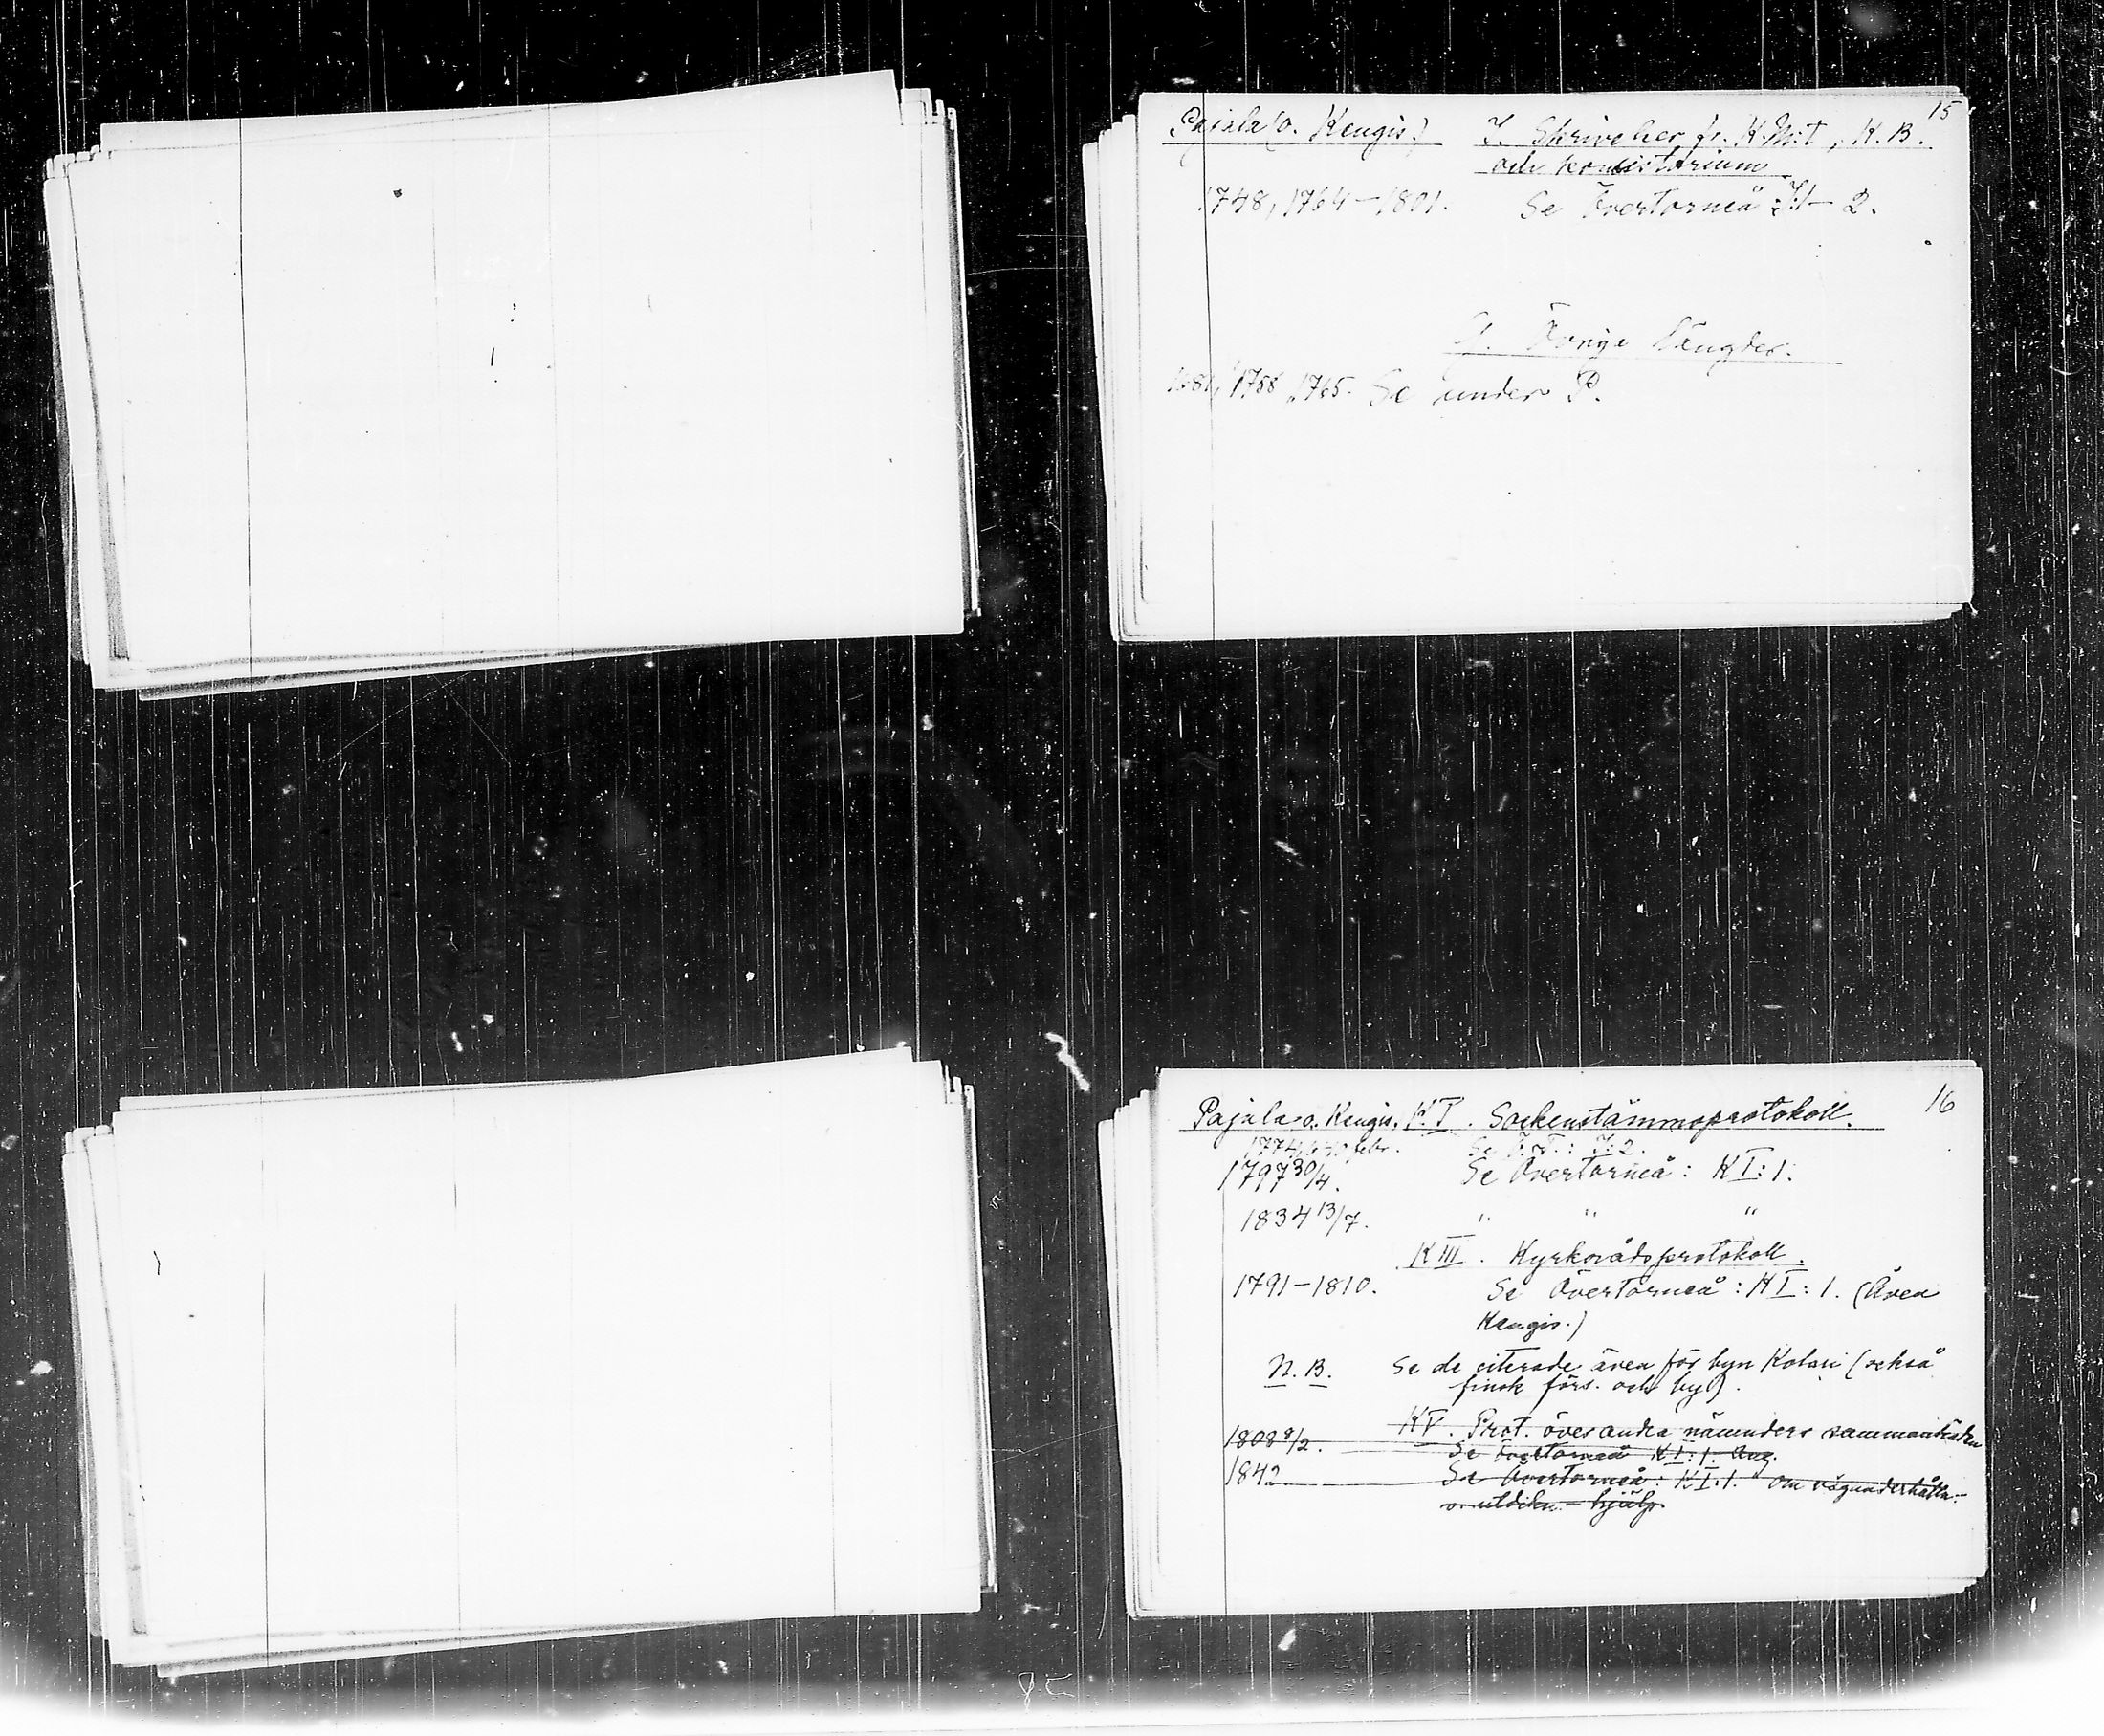 15
Pajala (o. Kengis.) I. Skrivelser fr. K.M:t, K.B.
och konsistorium
1748, 1764–1801. Se Övertorneå: I:1–2.
J. Övriga längder.
1681, 1758, 1765. Se under P.
16
Pajala o. Kengis. K I. Sockenstämmoprotokoll.
1774, febr. Se Ö.T.: I:2.
1797 30/4. Se Övertorneå: K I: 1.
1834 13/7. " " "
K III. Kyrkorådsprotokoll.
1791–1810. Se Övertorneå: K I: 1. (Även
Kengis.)
N.B. Se de citerade även för byn Kolari (också
finsk förs. och by).
K V. Prot. över andra nämnders sammanträden
1808 8/2. Se Övertorneå K I: 1.
1842 Se Övertorneå: K I: 1. om vägunderhålln.-
o. utdikn. - hjälp.